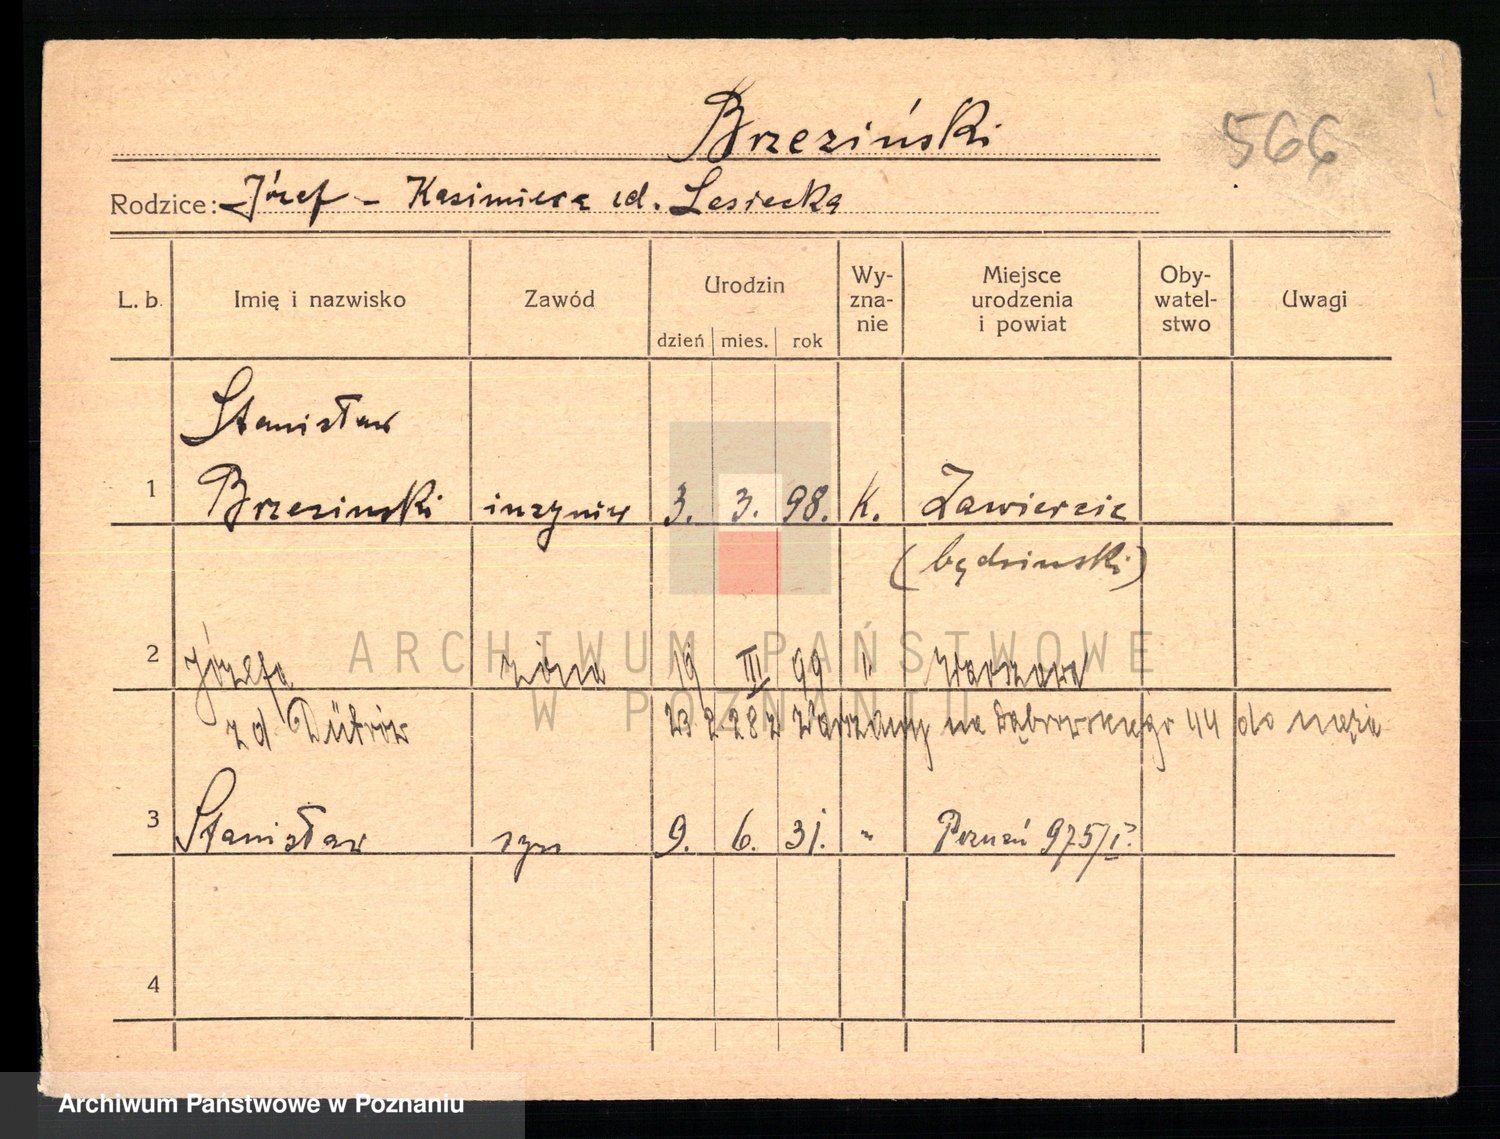 Brzeziński
566
Rodzice: Józef – Kazimiera zd. Lesiecka
L. b. Imię i nazwisko Zawód Urodzin Wy-zna-nie Miejsce urodzenia i powiat Oby-watel-stwo Uwagi
dzień mies. rok
Stanisław
1 Brzezinski inżynier 3. 3. 98. K. Zawiercie
(będzinski)
ARCHIWUM PAŃSTWOWE
W POZNANIU
2 Józefa żona 19 III 99 " Warszawa
z d.
23 2 28 z Warszawy na Dąbrowskiego 44 do męża
3 Stanisław syn 9. 6. 31. " Poznań 975/I
4
Archiwum Państwowe w Poznaniu